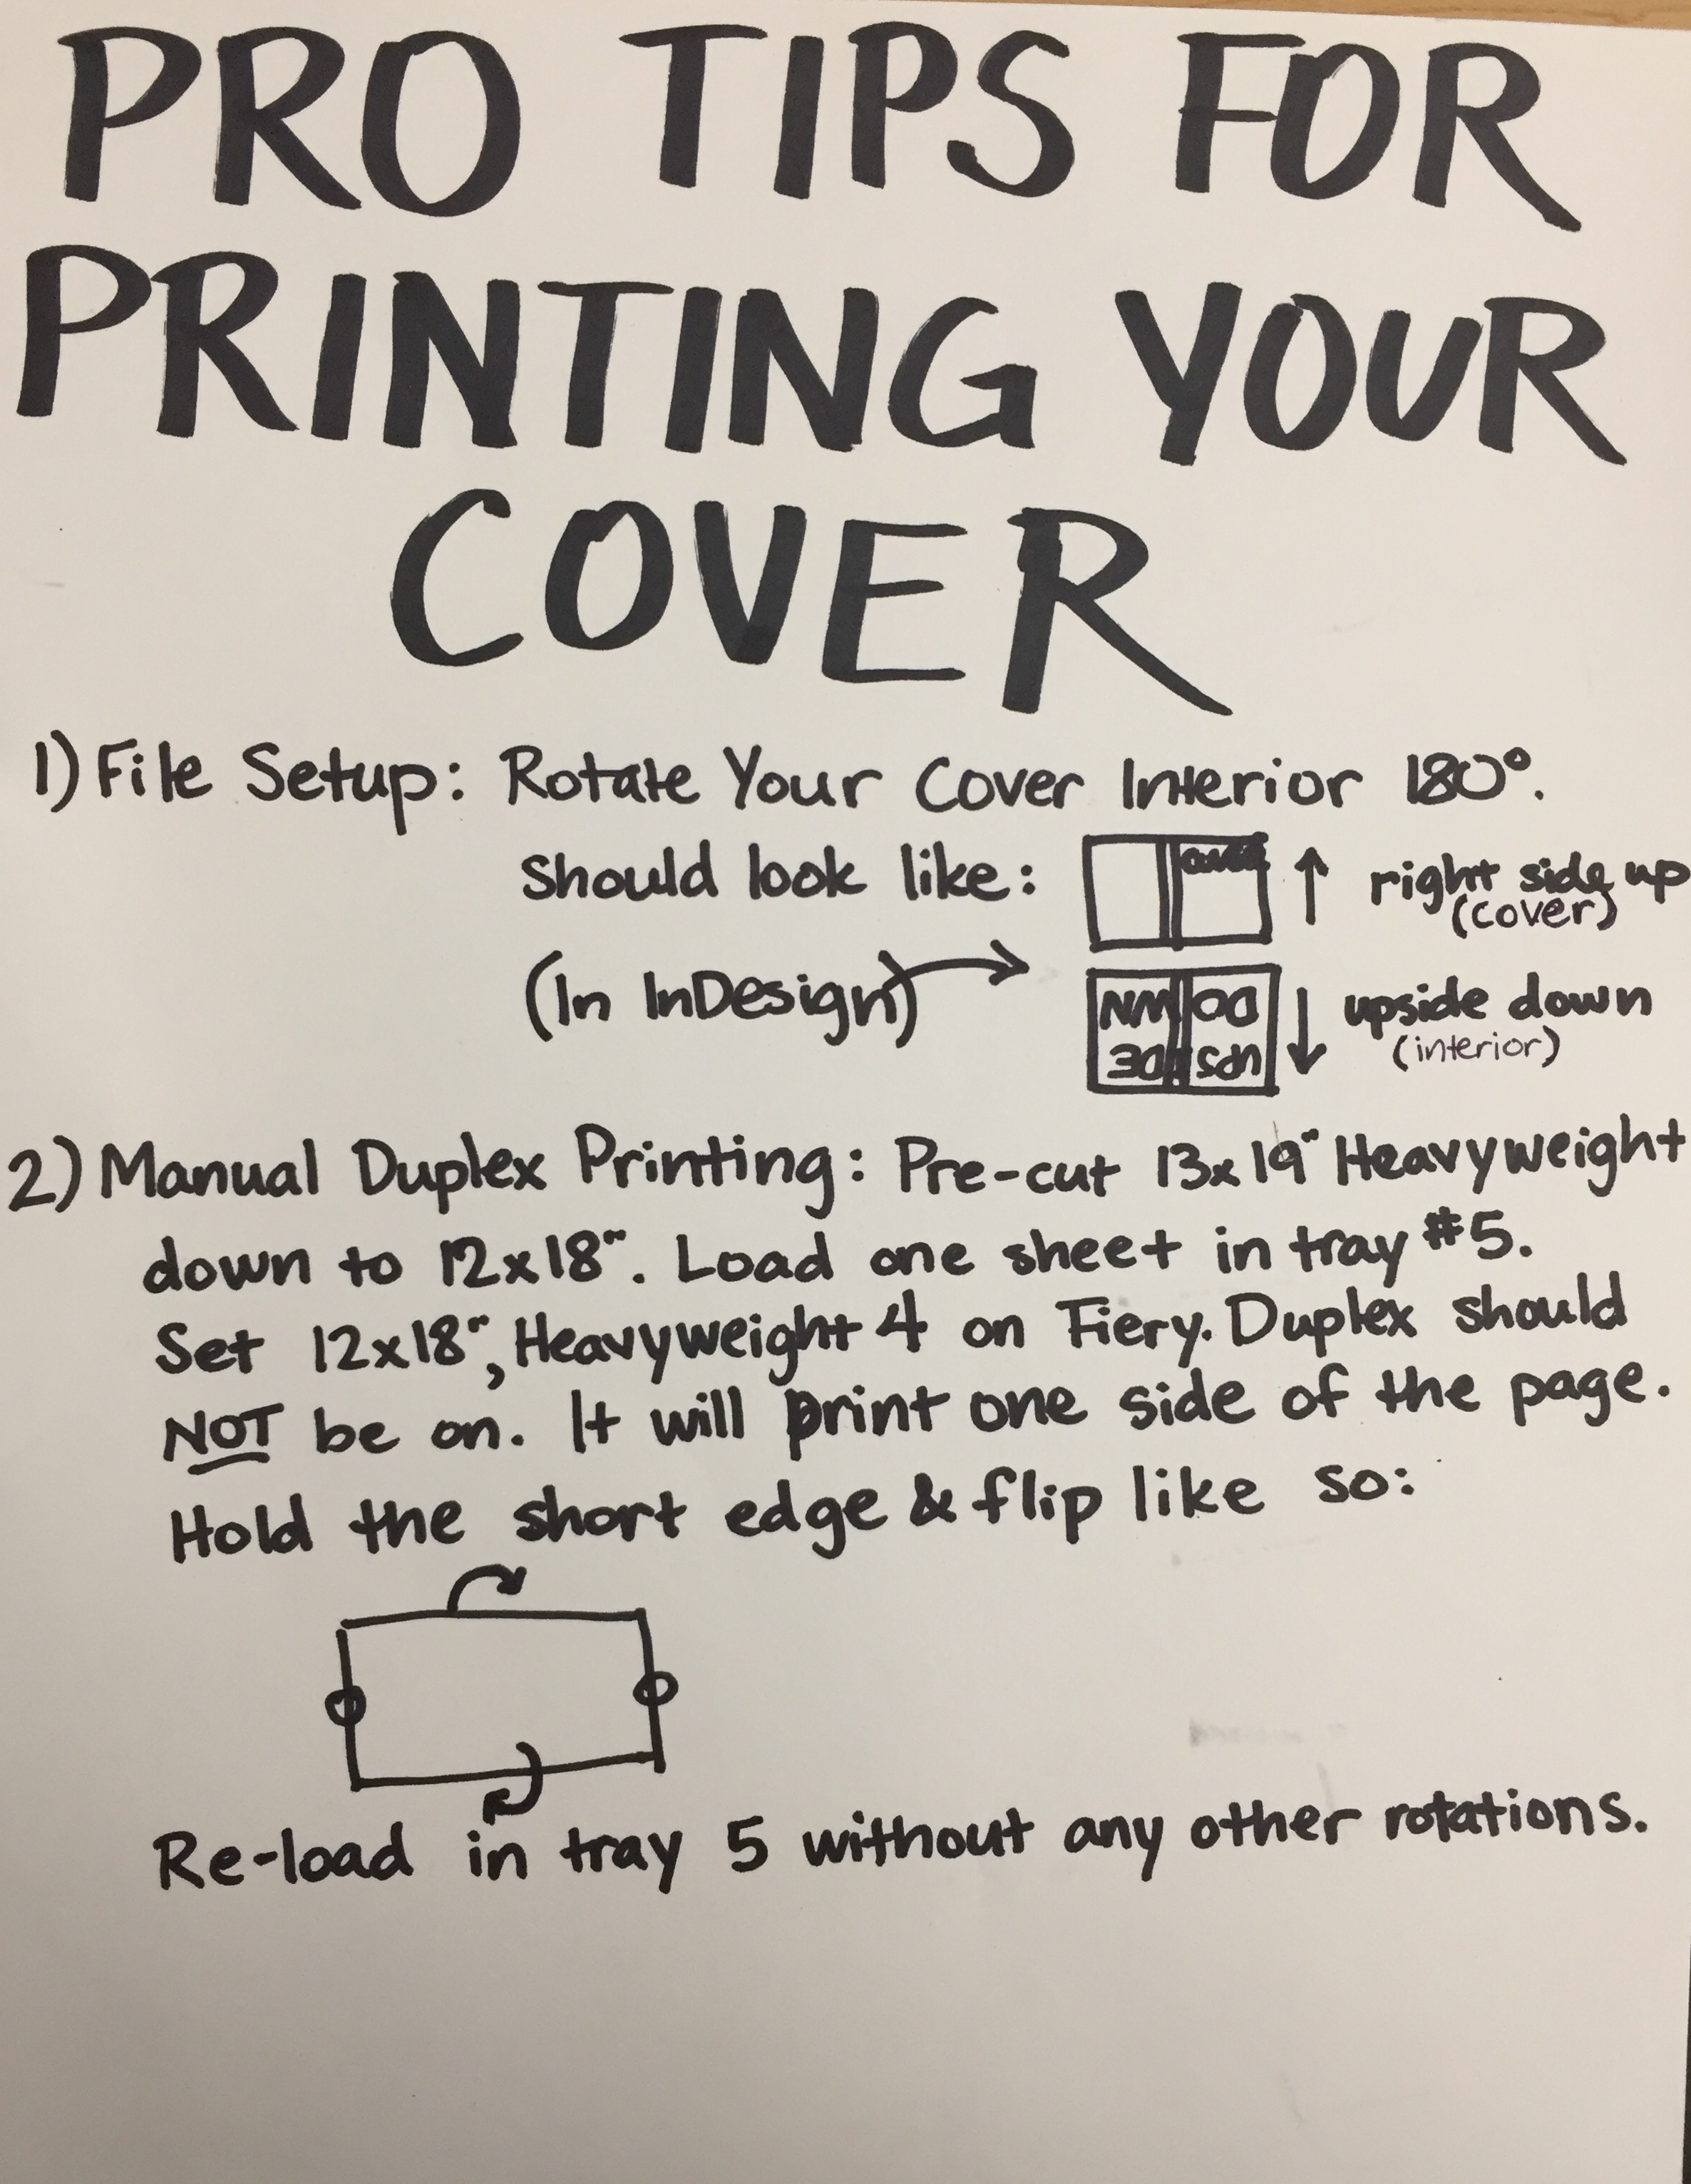 PRO TIPS FOR
PRINTING YOUR
COVER
1) File Setup: Rotate Your Cover Interior 180°.
Should look like:
right side up
(cover)
(In InDesign)
upside down
(interior)
2) Manual Duplex Printing: Pre-cut 13x19" Heavyweight
down to 12x18". Load one sheet in tray #5.
Set 12x18", Heavyweight 4 on Fiery. Duplex should
NOT be on. It will print one side of the page.
Hold the short edge & flip like so:
Re-load in tray 5 without any other rotations.